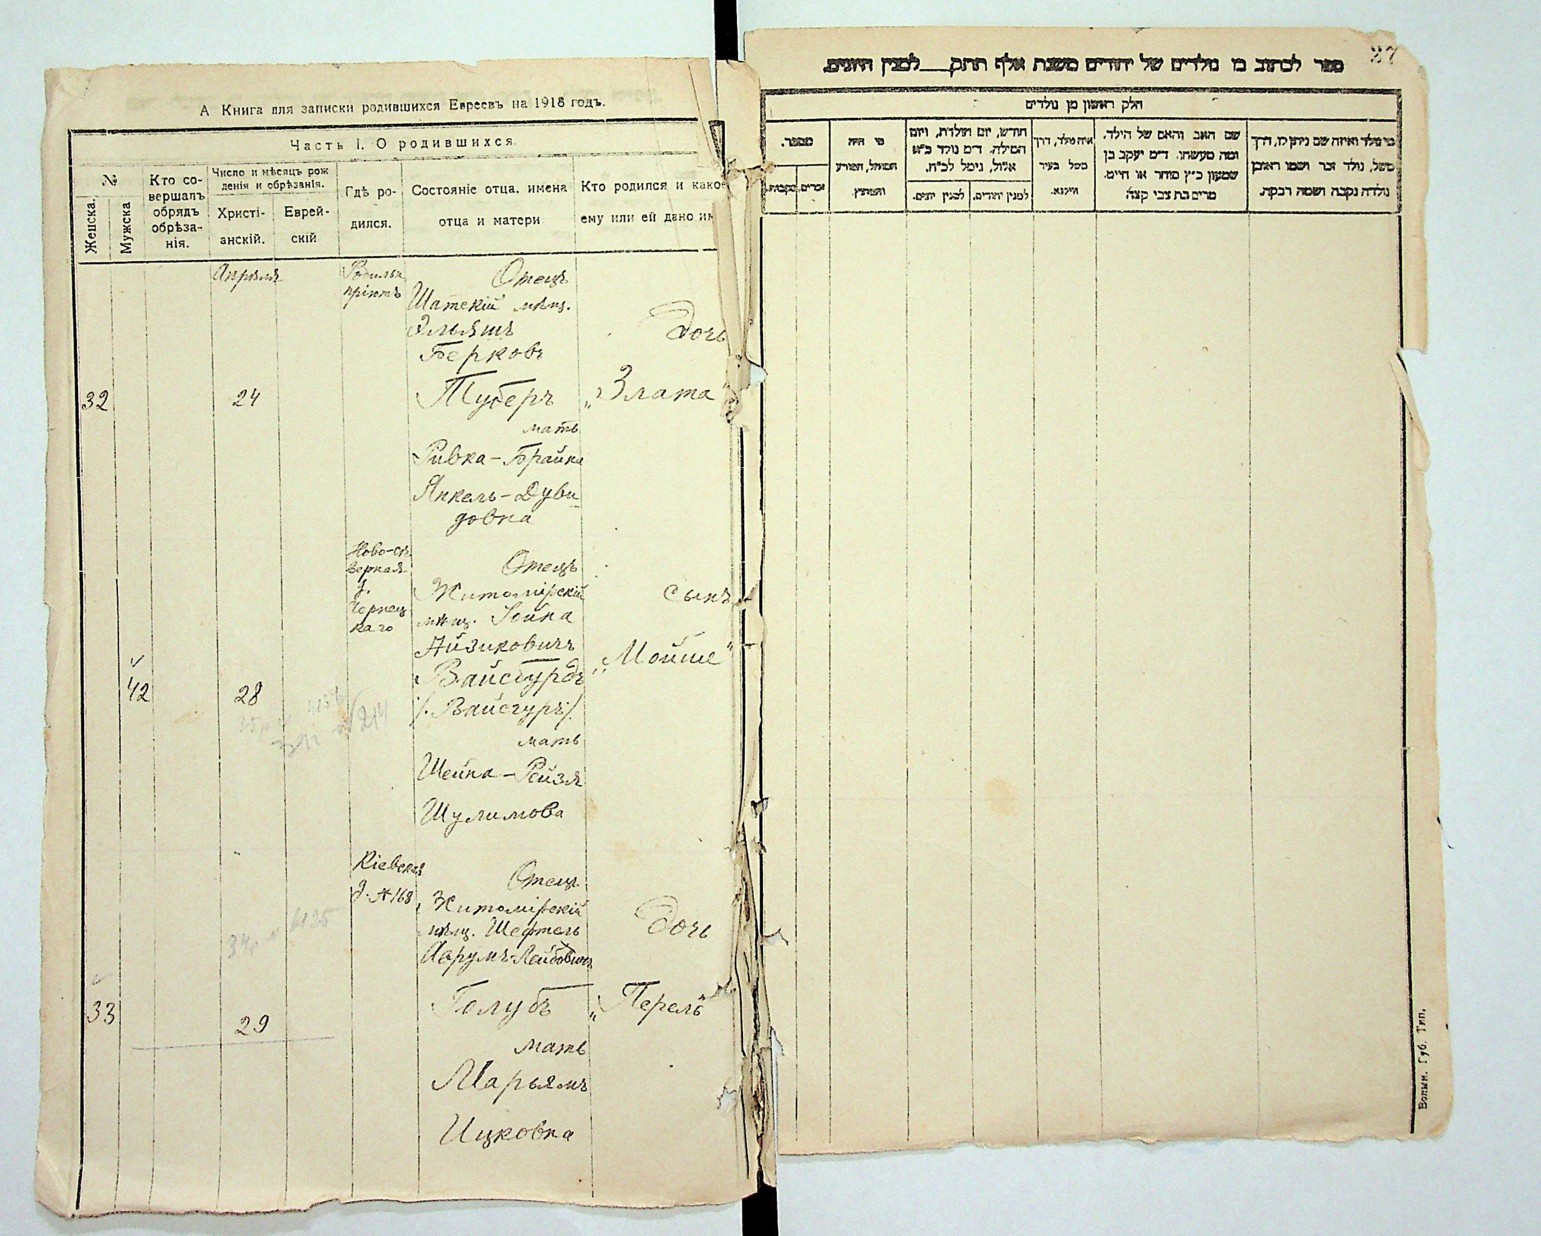 А Книга для записки родившихся Евреевъ на 1918 годъ.
Часть I. О родившихся
№
Женска.
Мужска
Кто со-
вершалъ
обрядъ
обрѣза-
нія.
Число и мѣсяцъ рож
денія и обрѣзанія.
Христі-
анскій.
Еврей-
скій
Гдѣ ро-
дился.
Состояніе отца, имена
отца и матери
Кто родился и како
ему или ей дано им
Апрѣля
32
24
Родильн
пріютъ
Отецъ
Шатскій мѣщ.
Эльяшъ
Берковъ
Туберъ
мать
Ривка-Брайна
Янкель-Дуви
довна
дочь
„Злата"
42
28
Ново-сѣ
верная
д.
Чернец
каго
Отецъ
Житомірскій
мѣщ. Іойна
Айзиковичъ
Вайсбурдъ
/Вайсгурт/
мать
Шейна-Рейзя
Шулимова
сынъ
„Мойше"
33
29
Кіевская
д. №168
Отецъ
Житомірскій
мѣщ. Шефтель
Аврумъ-Лейбовичъ
Голубъ
мать
Марьямъ
Ицковна
дочь
„Перель"
27
ספר לכתוב בו נולדים של יהודים משנת אלף תתק__לבנין היונים.
חלק ראשון מן נולדים
מספר.
זכרים
נקבות.
מי היה
המוהל, הפורע
והמוצץ
חודש, יום הולדת, ויום
המילה. ד״מ נולד כ״ט
אלול, נימל לכ״ח.
לבנין יונים.
לבנין יהודים.
איה נולד, דרך
משל בעיר
ווילנא.
שם האב והאם של הילד,
ומה מעשהו. ד״מ יעקב בן
שמעון כ״ץ סוחר או חייט.
מרים בת צבי קצב
מי נולד ואיזה שם ניתן לו, דרך
משל, נולד זכר ושמו ראובן
נולדה נקבה ושמה רבקה.
Волын. Губ. Тип.